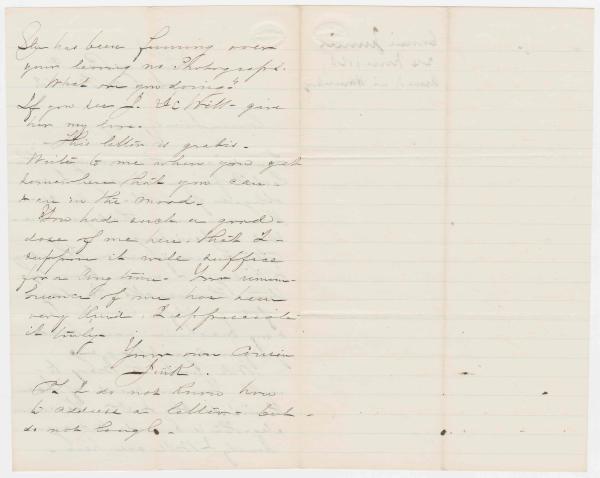 has been fuming over
your leaving no Photographs.
What are you doing?
If you see J. McNett give
him my love.
This letter is gratis.
Write to me when you get
somewhere that you can
& are in the mood.
You had such a good
dose of me here that I
suppose it will suffice
for a long time. Your remem-
brance of me has been
very kind. I appreciate
it truly.
Your own Cousin
I do not know how
to address a letter but
do not laugh.
Cousin